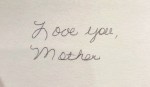 Love you,
Mother